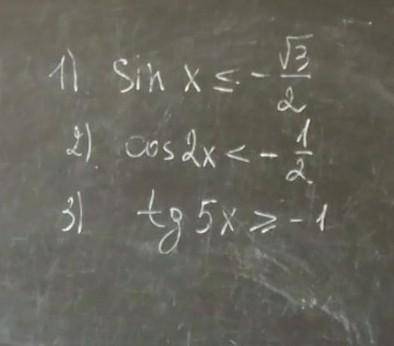 1) sin x ≤ -√3/2
2) cos 2x < -1/2
3) tg 5x ≥ -1